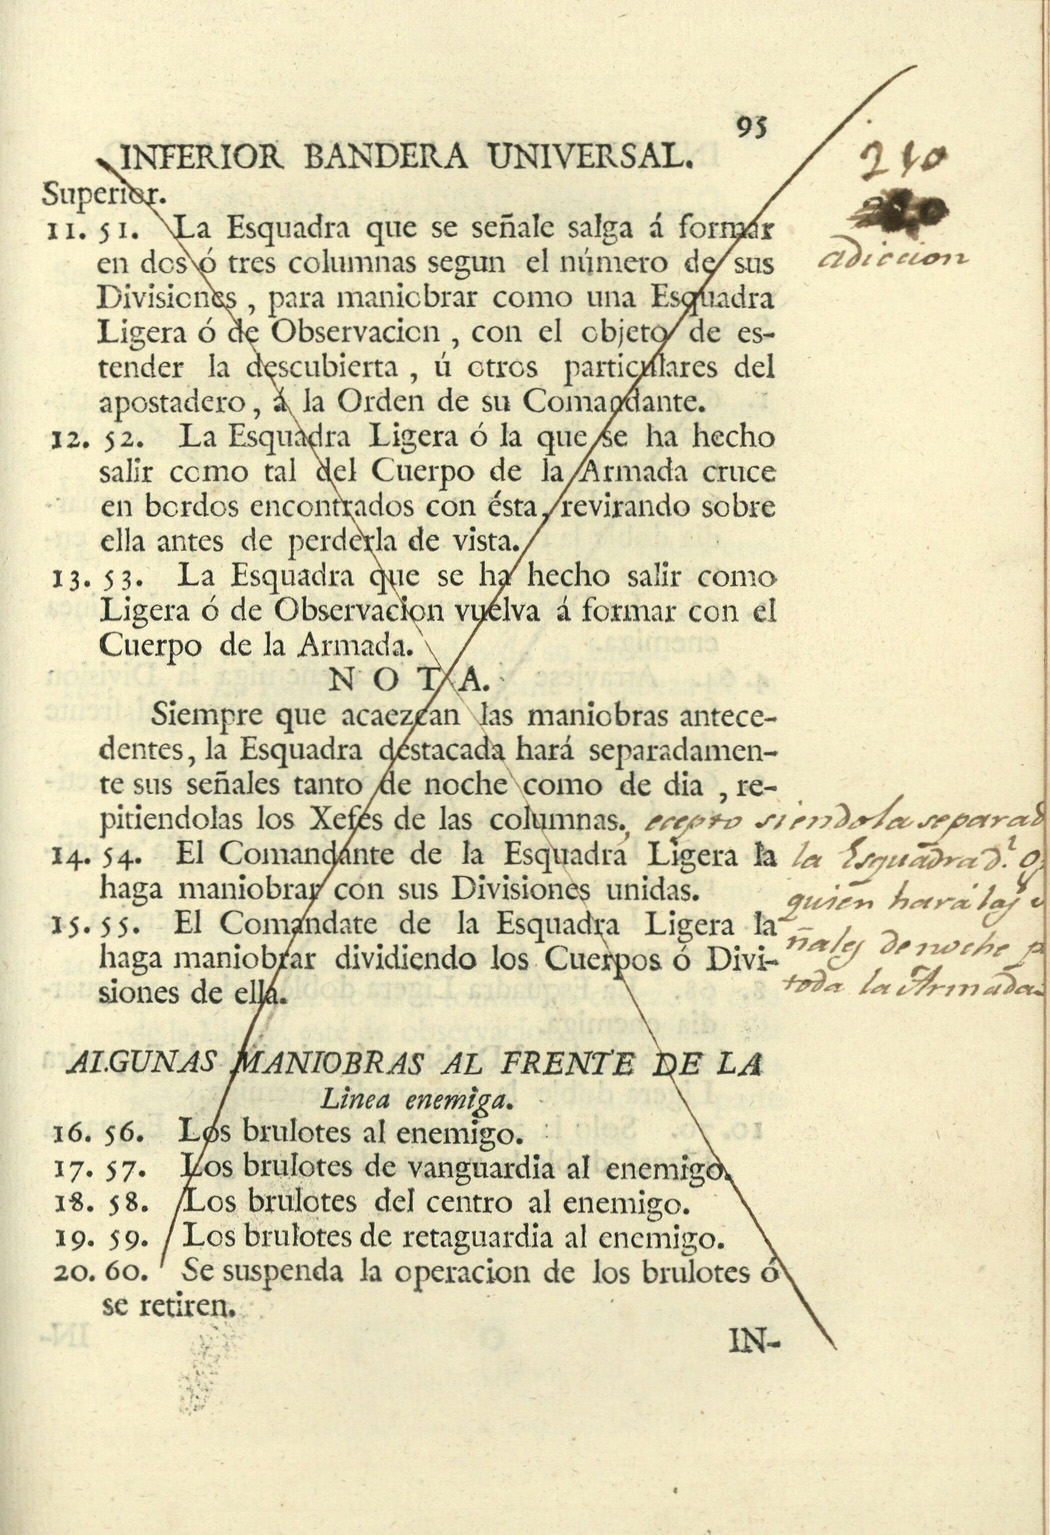 95
INFERIOR BANDERA UNIVERSAL.
210
Superior.
adiccion
11. 51. La Esquadra que se señale salga á formar
en dos ó tres columnas segun el número de sus
Divisiones, para maniobrar como una Esquadra
Ligera ó de Observacion, con el objeto de es-
tender la descubierta, ú otros particulares del
apostadero, á la Orden de su Comandante.
12. 52. La Esquadra Ligera ó la que se ha hecho
salir como tal del Cuerpo de la Armada cruce
en bordos encontrados con ésta, revirando sobre
ella antes de perderla de vista.
13. 53. La Esquadra que se ha hecho salir como
Ligera ó de Observacion vuelva á formar con el
Cuerpo de la Armada.
NOTA.
Siempre que acaezcan las maniobras antece-
dentes, la Esquadra destacada hará separadamen-
te sus señales tanto de noche como de dia, re-
pitiendolas los Xefes de las columnas.
ecepto siendo la separad
la Esquadra d.l
quien hará las
ñales de noche
toda la Armada
14. 54. El Comandante de la Esquadra Ligera la
haga maniobrar con sus Divisiones unidas.
15. 55. El Comandate de la Esquadra Ligera la
haga maniobrar dividiendo los Cuerpos ó Divi-
siones de ella.
ALGUNAS MANIOBRAS AL FRENTE DE LA
Linea enemiga.
16. 56. Los brulotes al enemigo.
17. 57. Los brulotes de vanguardia al enemigo.
18. 58. Los brulotes del centro al enemigo.
19. 59. Los brulotes de retaguardia al enemigo.
20. 60. Se suspenda la operacion de los brulotes ó
se retiren.
IN-